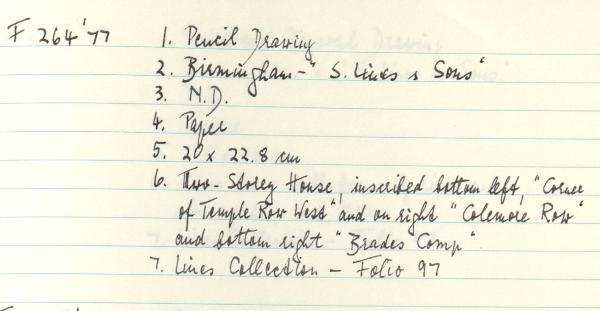 F 264'77 1. Pencil Drawing
2. Birmingham - "S. Lines & Sons"
3. N.D.
4. Paper
5. 20 x 22.8 cm
6. Two-Storey House, inscribed bottom left, "Corner
of Temple Row West" and on right "Colemore Row"
and bottom right "Brades Comp".
7. Lines Collection - Folio 97